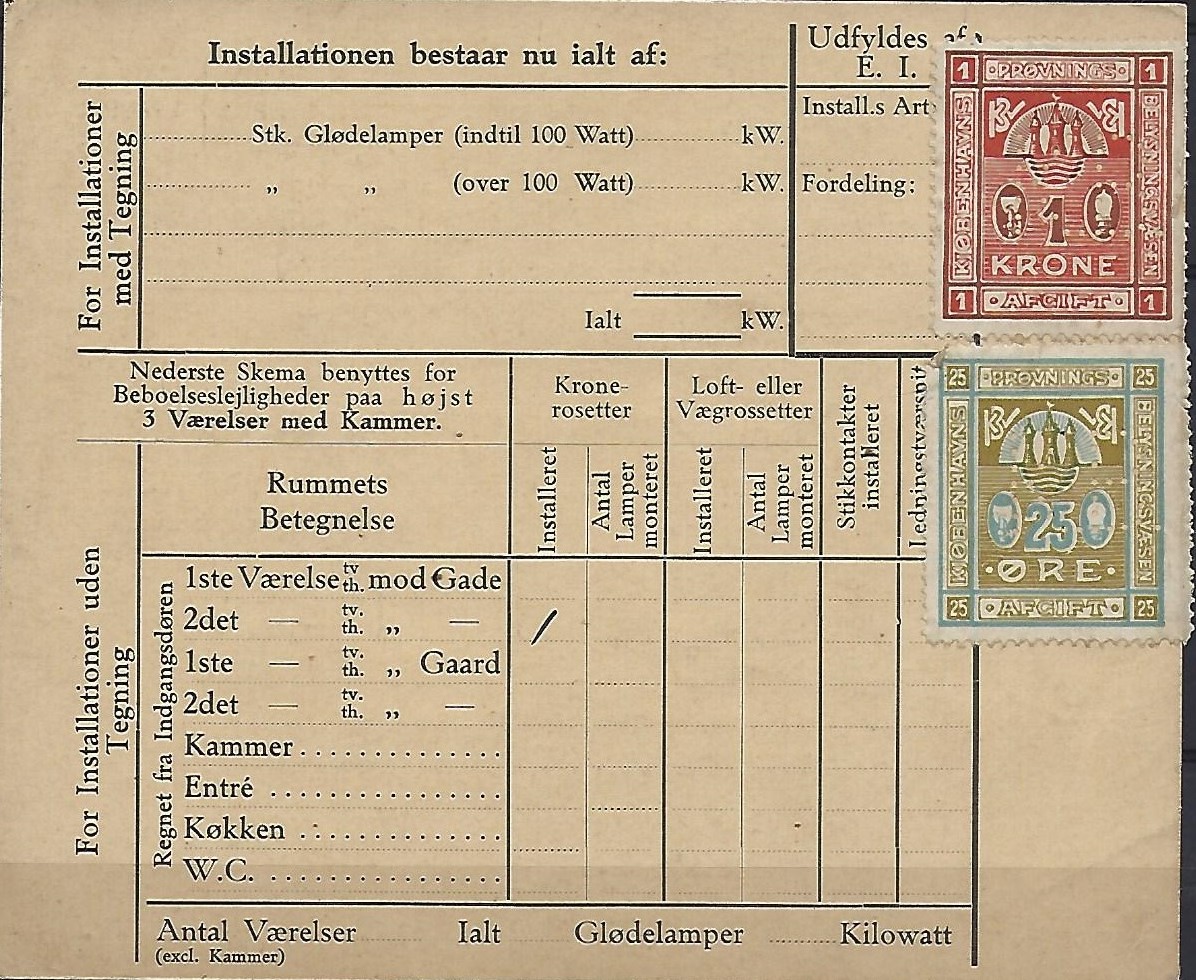 Installationen bestaar nu ialt af:
Udfyldes af
E. I.
For Installationer
med Tegning
Stk. Glødelamper (indtil 100 Watt) kW.
„ „ (over 100 Watt) kW.
Ialt kW.
Install.s Art
Fordeling:
1 PRØVNINGS 1
KØBENHAVNS
BELYSNINGSVÆSEN
1
KRONE
1 AFGIFT 1
Nederste Skema benyttes for
Beboelseslejligheder paa højst
3 Værelser med Kammer.
Krone-
rosetter
Loft- eller
Vægrossetter
Stikkontakter
installeret
Ledningstværsnit
Rummets
Betegnelse
Installeret
Antal
Lamper
monteret
Installeret
Antal
Lamper
monteret
25 PRØVNINGS 25
KØBENHAVNS
BELYSNINGSVÆSEN
25
ØRE
25 AFGIFT 25
For Installationer uden
Tegning
Regnet fra Indgangsdøren
1ste Værelse tv. th. mod Gade
2det — tv. th. „ —
1ste — tv. th. „ Gaard
2det — tv. th. „ —
Kammer
Entré
Køkken
W.C.
Antal Værelser Ialt Glødelamper Kilowatt
(excl. Kammer)